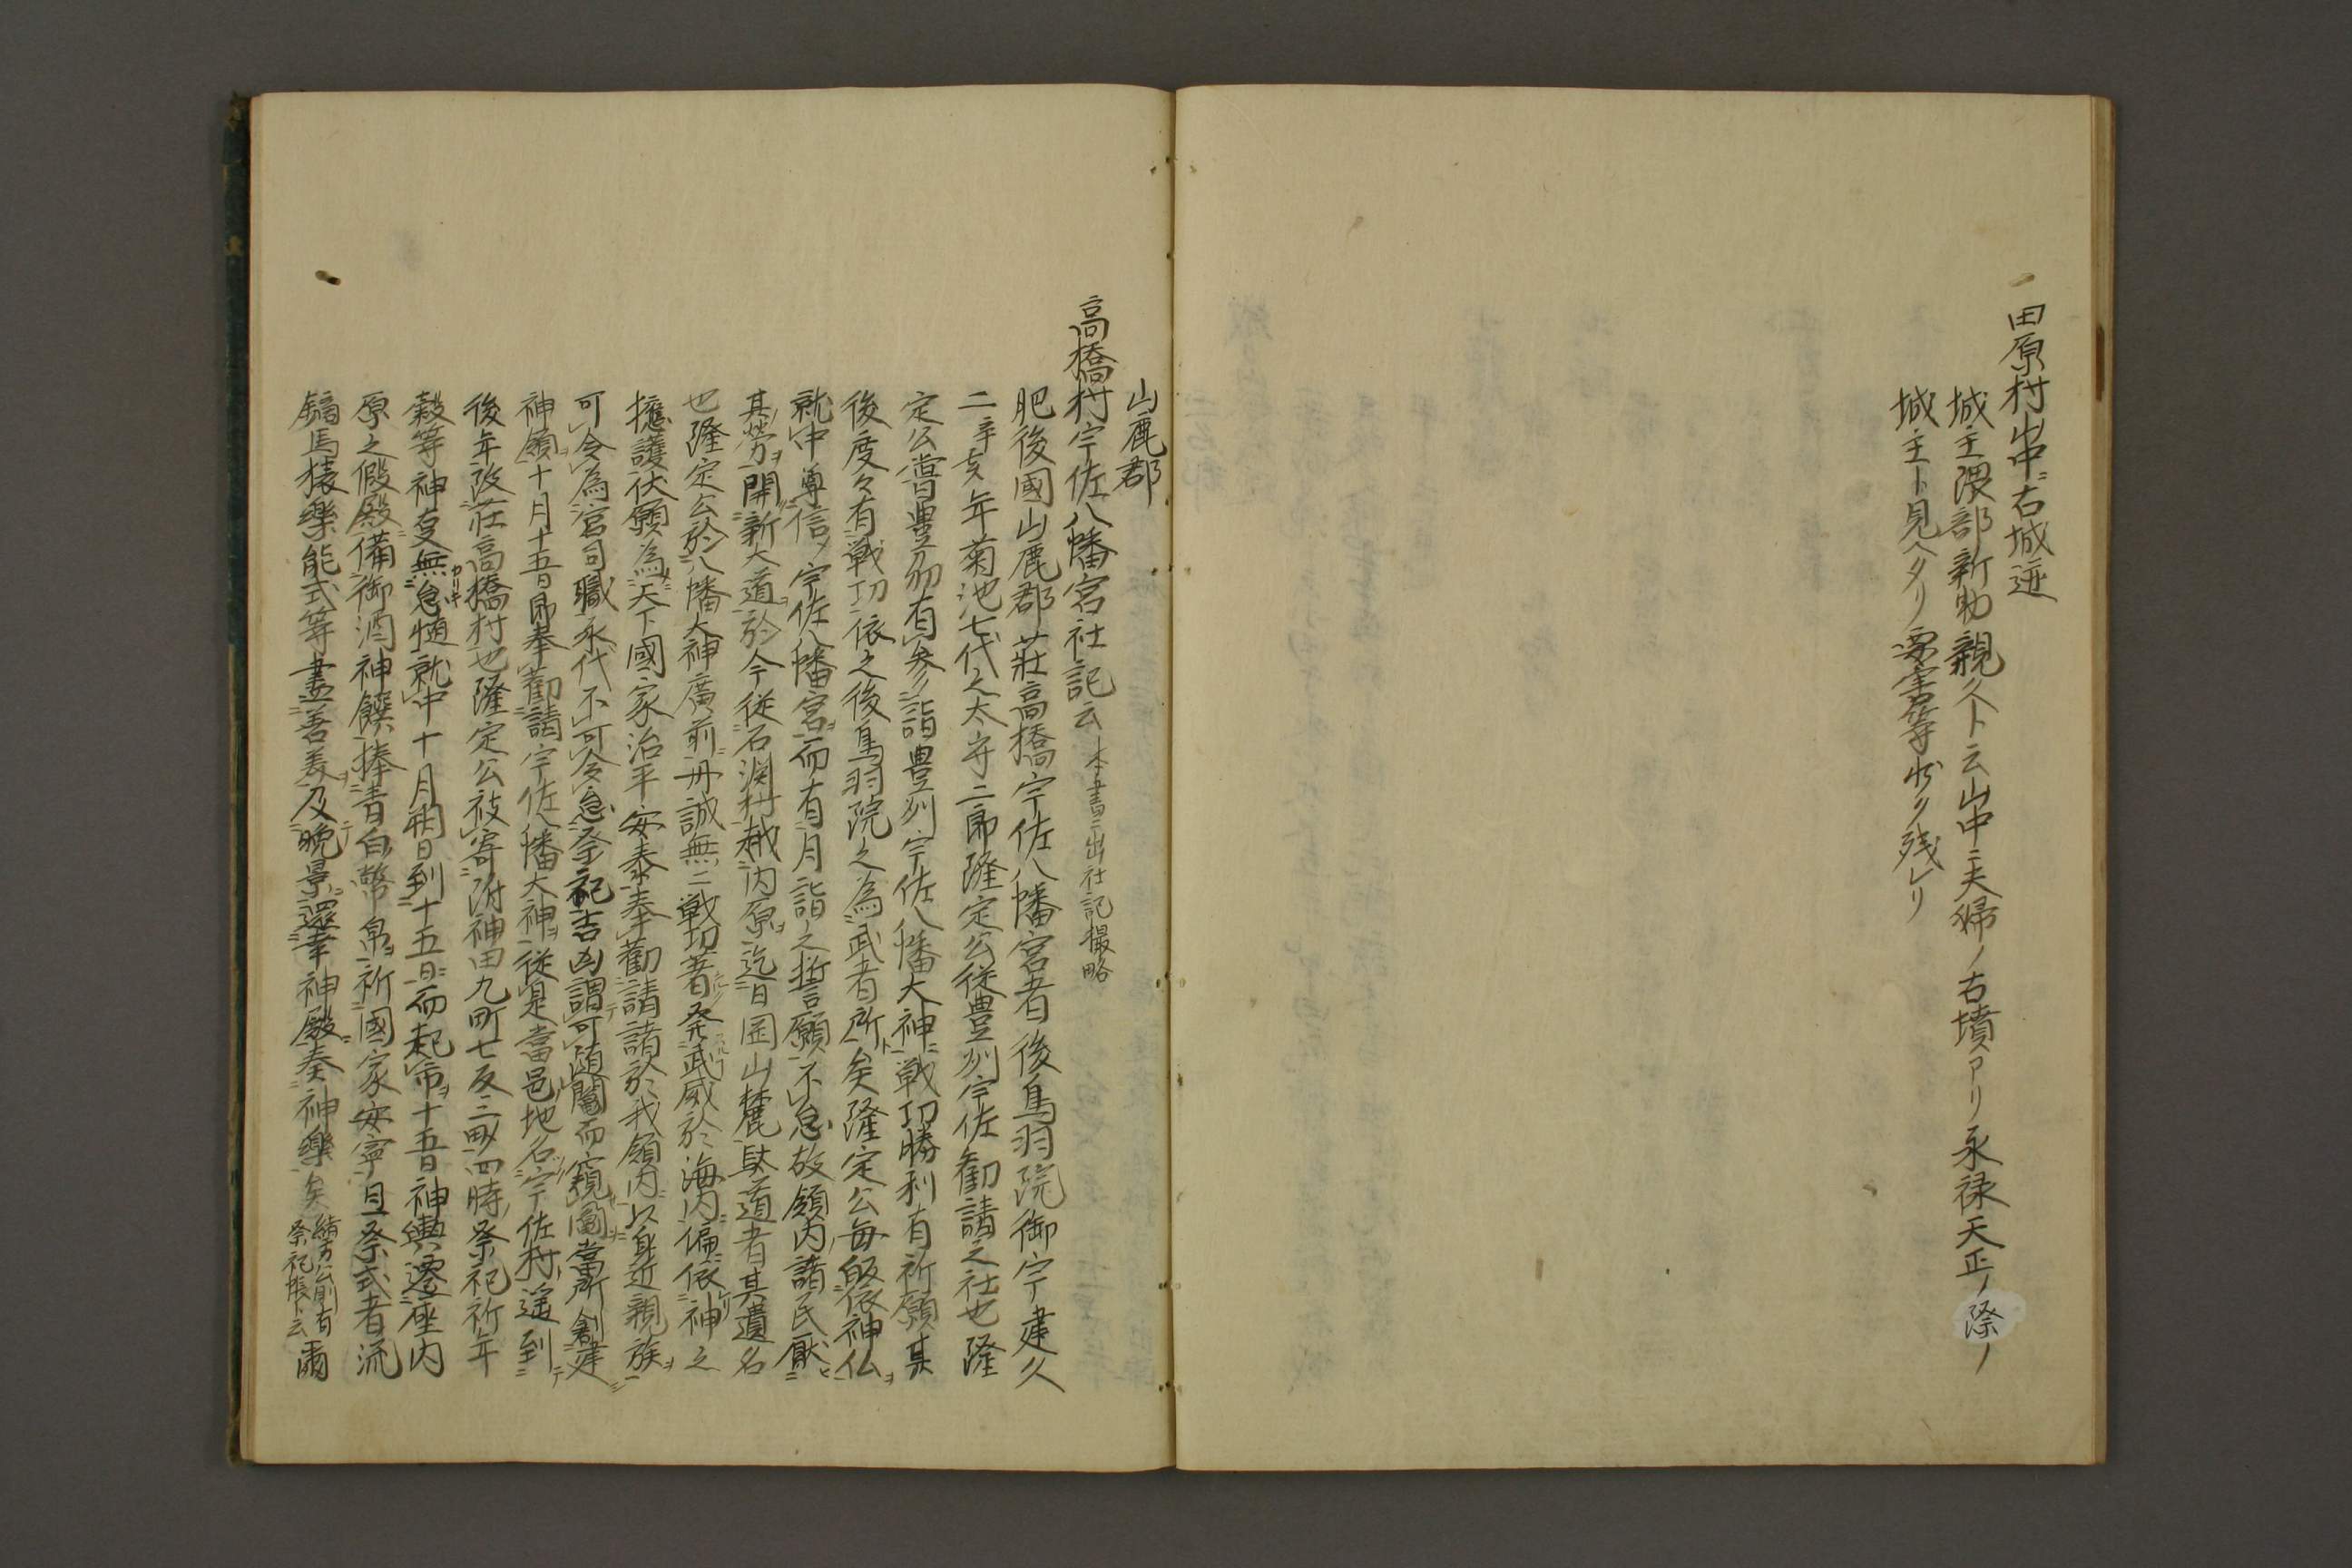 田原村山中ニ古城迹
城主隈部新助親久ト云山中ニ夫婦ノ古墳アリ永禄天正ノ際ノ
城主ト見ヘタリ要害等少ク残レリ
山鹿郡
高橋村宇佐八幡宮社記云 本書ニ出社記撮略
肥後國山鹿郡莊高橋宇佐八幡宮者後鳥羽院御宇建久
二辛亥年菊池七代之太守二郎隆定公従豊刕宇佐勧請之社也隆
定公嘗豊刕有参詣豊刕宇佐八幡大神戦功勝利有祈願其
後度々有戦功依之後鳥羽院之為武者所矣隆定公毎皈依神仏
就中尊信宇佐八幡宮而有月詣之誓願不怠故領内諸民厭
其労開新大道於今従石渕村越内原迄日岡山麓駄道者其遺名
也隆定公於八幡大神廣前丹誠無二戦切著発武威於海内偏依神之
擁護伏願為天下國家治平安泰奉勧請諸於我領内以身近親族
可令為宮司職永代不可令怠祭祀吉凶謂可随鬮而窺鬮當所創建
神領十月十五日即奉勧請宇佐八幡大神従是當邑地名宇佐村遥到
後年改莊高橋村也隆定公被寄附神田九町七反三畝四時祭祀祈年
穀等神㕝無怠慥就中十月朔日到十五日而起市十五日神輿遷座内
原之假殿備御酒神饌捧青白幣帛祈國家安寧且祭式者流
鏑馬猿樂能式等盡善美及晩景還幸神殿奏神樂矣 緒方公前有祭祀帳ト云 爾